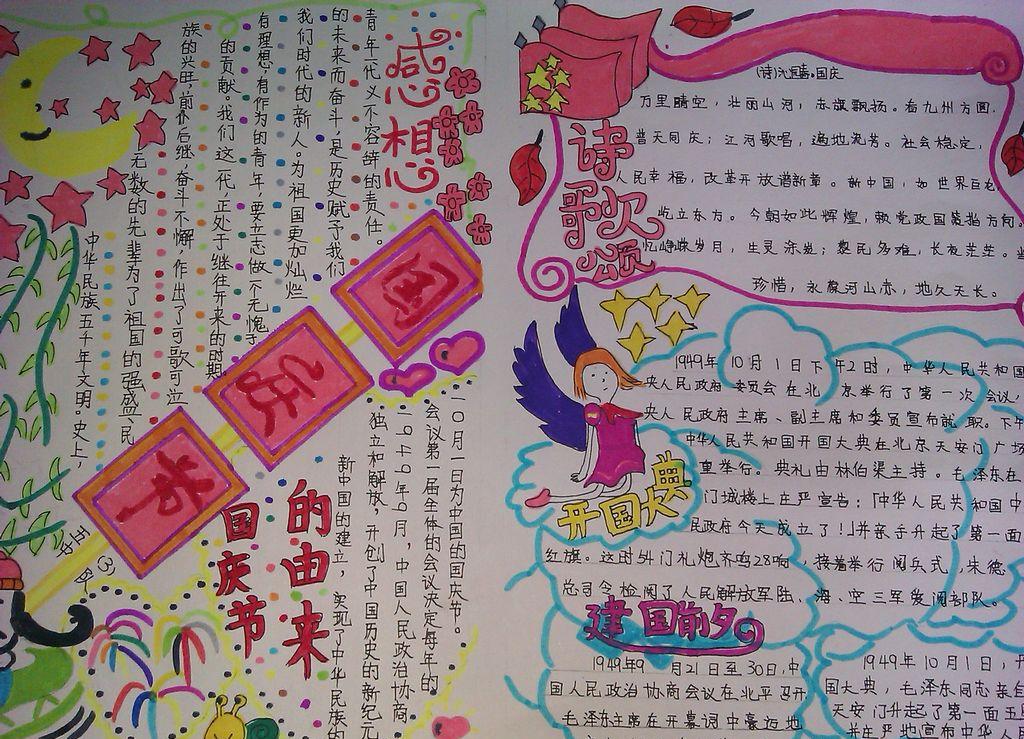 感想
青年一代义不容辞的责任。
的未来而奋斗,是历史赋予我们
我们时代的新人。为祖国更加灿烂
有理想,有作为的青年,要立志做个无愧于
的贡献。我们这一代,正处于继往开来的时期,
族的兴旺,前仆后继,奋斗不懈,作出了可歌可泣
无数的先辈为了祖国的强盛、民
中华民族五千年文明。史上,
国
庆
五中队
国庆节
的由来
一〇月一日为中国的国庆节。
会议第一届全体的会议决定每年的
一九四九年9月,中国人民政治协商
独立和解放,开创了中国历史的新纪元
新中国的建立,实现了中华民族的
诗歌颂
国庆
万里晴空,壮丽山河,赤旗飘扬。看九州方圆,
普天同庆;江河歌唱,遍地流芳。社会稳定,
人民幸福,改革开放谱新章。新中国,如世界巨龙
屹立东方。今朝如此辉煌,赖党政国策指方向。
忆峥嵘岁月,生灵涂炭;黎民多难,长夜茫茫。当
珍惜,永葆河山赤,地久天长。
开国大典
1949年10月1日下午2时,中华人民共和国
央人民政府委员会在北京举行了第一次会议,
央人民政府主席、副主席和委员宣布就职。下午
中华人民共和国开国大典在北京天安门广场
重举行。典礼由林伯渠主持。毛泽东在
门城楼上庄严宣告:「中华人民共和国中
民政府今天成立了!」并亲手升起了第一面
红旗。这时54门礼炮齐鸣28响,接着举行阅兵式,朱德
总司令检阅了人民解放军陆、海、空三军受阅部队。
建国前夕
1949年9月21日至30日,中
国人民政治协商会议在北平召开
毛泽东主席在开幕词中豪迈地
1949年10月1日,开
国大典,毛泽东同志亲自
天安门升起了第一面五
并庄严地宣布中华人